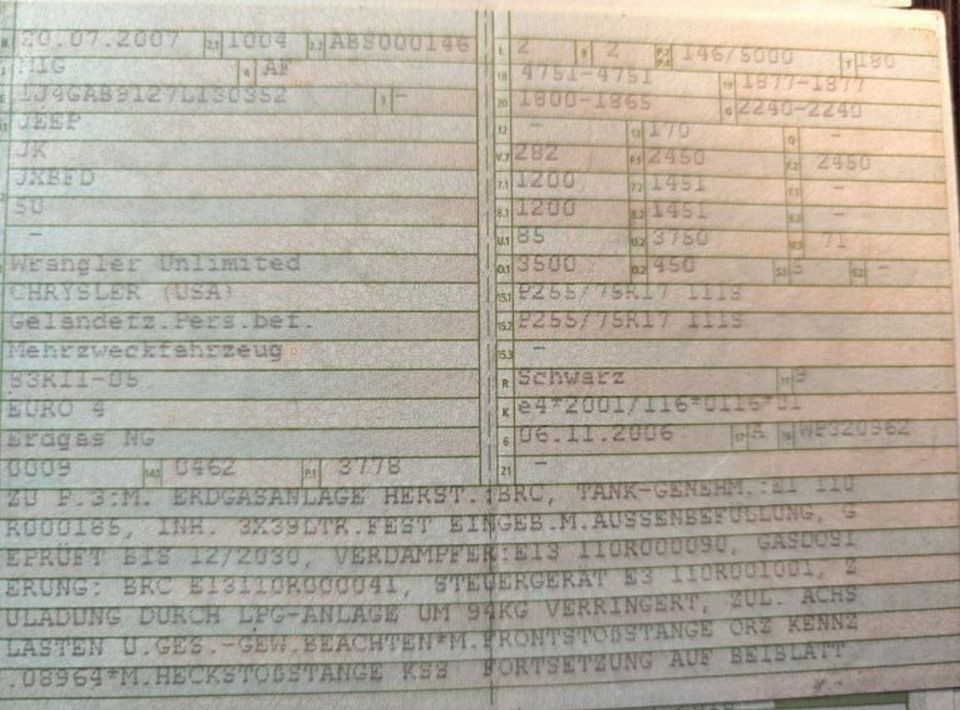 20.07.2007 2.1 1004 2.2 ABS000146
M1G 4 AF
3 -
JEEP
JK
JXBFD
50
-
Wrangler Unlimited
CHRYSLER (USA)
Geländefz.Pers.bef.
Mehrzweckfahrzeug
83R11-05
EURO 4
Erdgas NG
0009 0462 P.1 3778
2 9 2 P.2 P.4 146/5000 T 180
18 4751-4751 19 1877-1877
20 1800-1865 G 2240-2240
12 - 13 170 Q -
V.7 282 F.1 2450 F.2 2450
7.1 1200 7.2 1451 7.3 -
8.1 1200 8.2 1451 8.3 -
U.1 85 U.2 3750 U.3 71
O.1 3500 O.2 450 S.1 5 S.2 -
15.1 P255/75R17 111S
15.2 P255/75R17 111S
15.3 -
R Schwarz 11 9
K e4*2001/116*0116*01
6 06.11.2006 17 A 16
21 -
ZU P.3:M. ERDGASANLAGE HERST.:BRC, TANK-GENEHM.:E1 110
R000186, INH. 3X39LTR.FEST EINGEB.M.AUSSENBEFÜLLUNG, G
EPRÜFT BIS 12/2030, VERDAMPFER:E13 110R000090, GASDOSI
ERUNG: BRC E13110R000041, STEUERGERÄT E3 110R001001, Z
ULADUNG DURCH LPG-ANLAGE UM 94KG VERRINGERT, ZUL. ACHS
LASTEN U.GES.-GEW.BEACHTEN*M.FRONTSTOßSTANGE ORZ KENNZ
.08964*M.HECKSTOßSTANGE KSB FORTSETZUNG AUF BEIBLATT